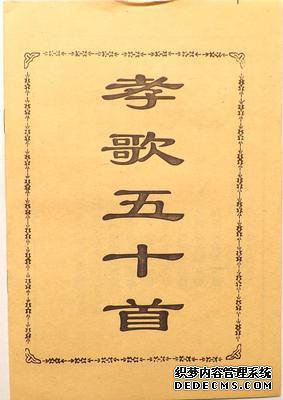 孝歌五十首
织梦内容管理系统
DEDECMS.COM